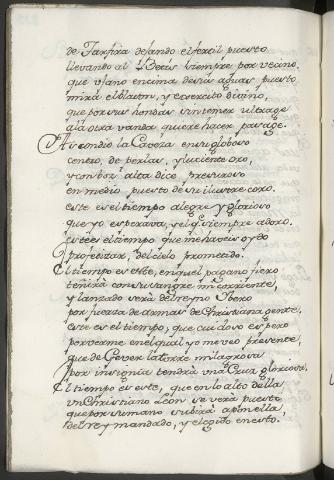 de Tarfira dejando el fertil puesto
llevando al Betis siempre por vecino,
que ufano encima de sus aguas puesto
mira el blason, y exercito divino,
que por sus hondas sin temer ultrage
a la otra vanda quiere hacer pasage.
Ascondio la Caveza en su globoso
centro, de perlas, y luciente oro,
y con boz alta dice presuroso
en medio puesto de su ilustre coro.
este es el tiempo alegre y glorioso
que yo esperava, y el q.e siempre adoro.
este es el tiempo que me haveis oydo
Profetizar, del cielo prometido.
El tiempo es este, en que el pagano fiero
teñirá con su sangre mi corriente,
y lanzado verá del reyno Ibero
por fuerza de armas de Christiana gente,
este es el tiempo, que cuidoso espero
por verme en el qual yo me veo presente,
que de Geber la torre milagrosa
por insignia tendrá una Cruz gloriosa.
El tiempo es este, que en lo alto della
un Christiano Leon se verá puesto
que por su mano subirá a ponella,
del rey mandado, y elegido en esto.